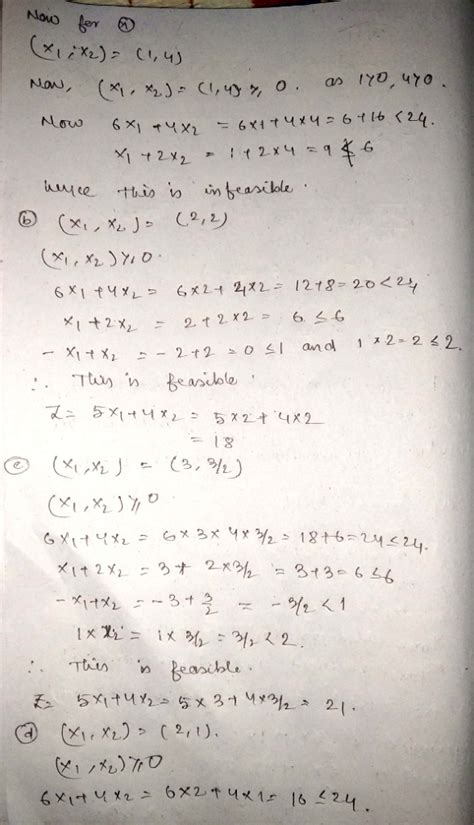 Now for ⓐ
(x₁, x₂) = (1, 4)
Now, (x₁, x₂) = (1, 4) ≥ 0. as 1>0, 4>0.
Now 6x₁ + 4x₂ = 6×1 + 4×4 = 6+16 < 24.
x₁ + 2x₂ = 1 + 2×4 = 9 ≰ 6
hence this is infeasible.
ⓑ (x₁, x₂) = (2, 2)
(x₁, x₂) ≥ 0.
6x₁ + 4x₂ = 6×2 + 4×2 = 12+8 = 20 < 24
x₁ + 2x₂ = 2 + 2×2 = 6 ≤ 6
- x₁ + x₂ = -2+2 = 0 ≤ 1 and 1×2 = 2 ≤ 2.
∴ This is feasible.
Z = 5x₁ + 4x₂ = 5×2 + 4×2
= 18
ⓒ (x₁, x₂) = (3, 3/2)
(x₁, x₂) ≥ 0
6x₁ + 4x₂ = 6×3×4×3/2 = 18+6 = 24 ≤ 24.
x₁ + 2x₂ = 3 + 2×3/2 = 3+3 = 6 ≤ 6
- x₁ + x₂ = -3 + 3/2 = -3/2 < 1
1×x₂ = 1×3/2 = 3/2 < 2.
∴ This is feasible.
Z = 5x₁ + 4x₂ = 5×3 + 4×3/2 = 21.
ⓓ (x₁, x₂) = (2, 1).
(x₁, x₂) ≥ 0
6x₁ + 4x₂ = 6×2 + 4×1 = 16 ≤ 24.